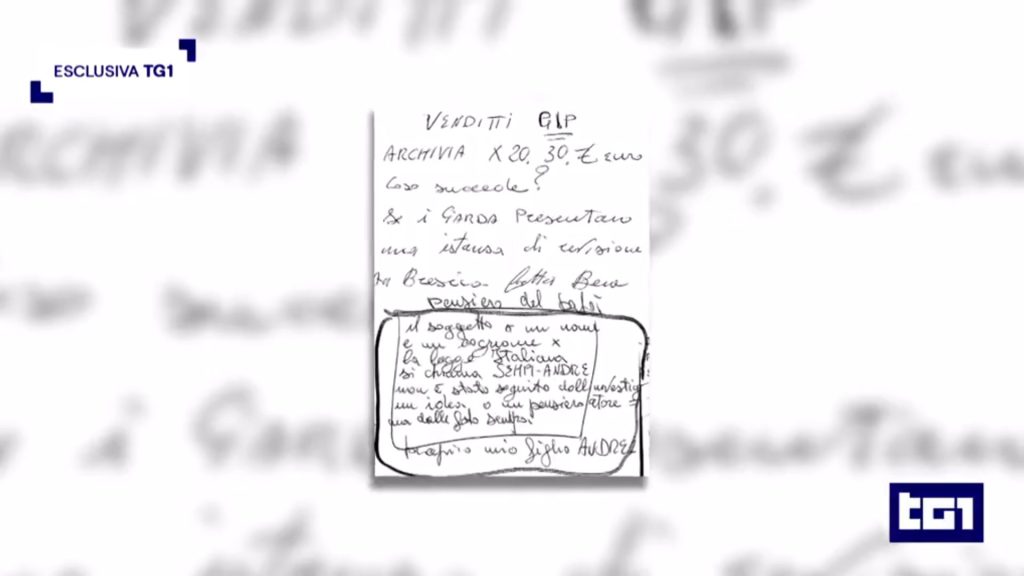 ESCLUSIVA TG1
VENDITTI GIP
ARCHIVIA X 20. 30. € euro
Cosa succede?
Se i GARDA Presentano
una istanza di revisione
A Brescia Bene
pensiero del
il soggetto o un nome
e un cognome x
la legge Italiana
si chiama SEMPI-ANDRE
non è stato seguito dall'investig
un idea, o un pensiero atore =
ma dalle foto
proprio mio figlio ANDREA
tg1